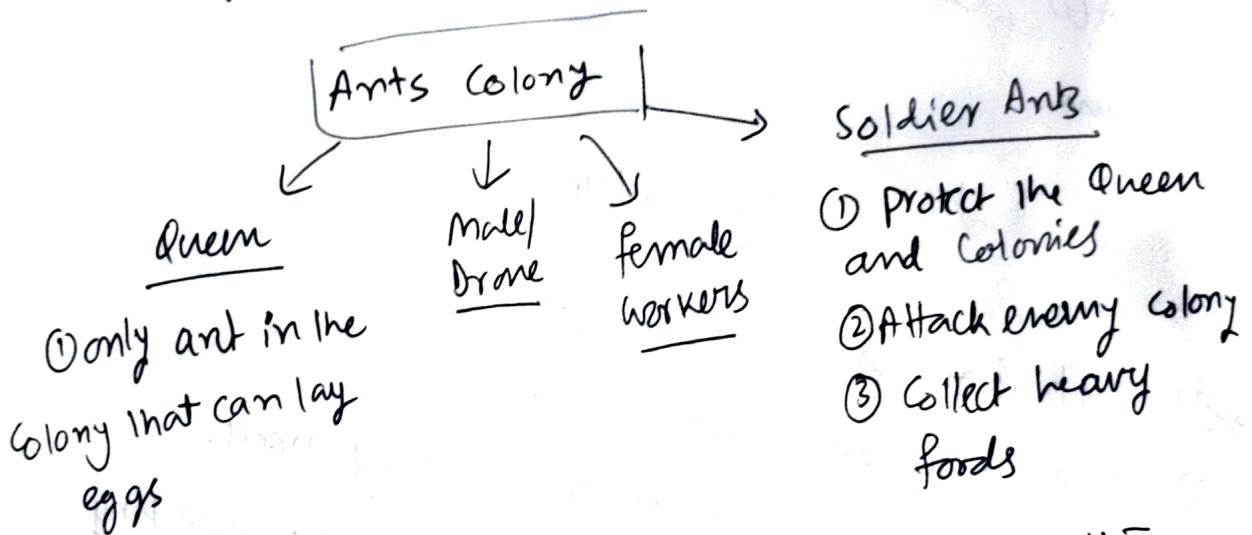 Ants Colony
Queen
① only ant in the
Colony that can lay
eggs
Male/
Drone
female
workers
Soldier Ants
① Protect the Queen
and Colonies
② Attack enemy Colony
③ Collect heavy
foods